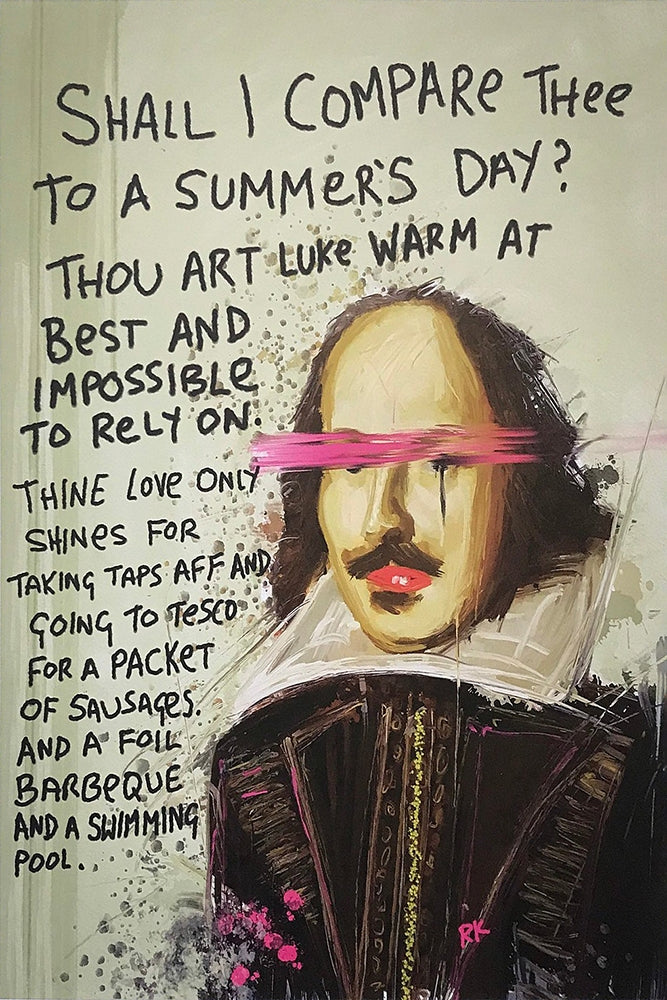 SHALL I COMPARE THee
TO A SUMMeR'S DAY?
THOU ART LUKe WARM AT
BeST AND
IMPOSSIBLe
TO ReLY ON.
THINE LOVe ONLY
SHINeS FOR
TAKING TAPS AFF AND
GOING TO TeSCO
FOR A PACKeT
OF SAUSAGeS.
AND A FOIL
BARBeQUE
AND A SWIMMING
POOL.
RK